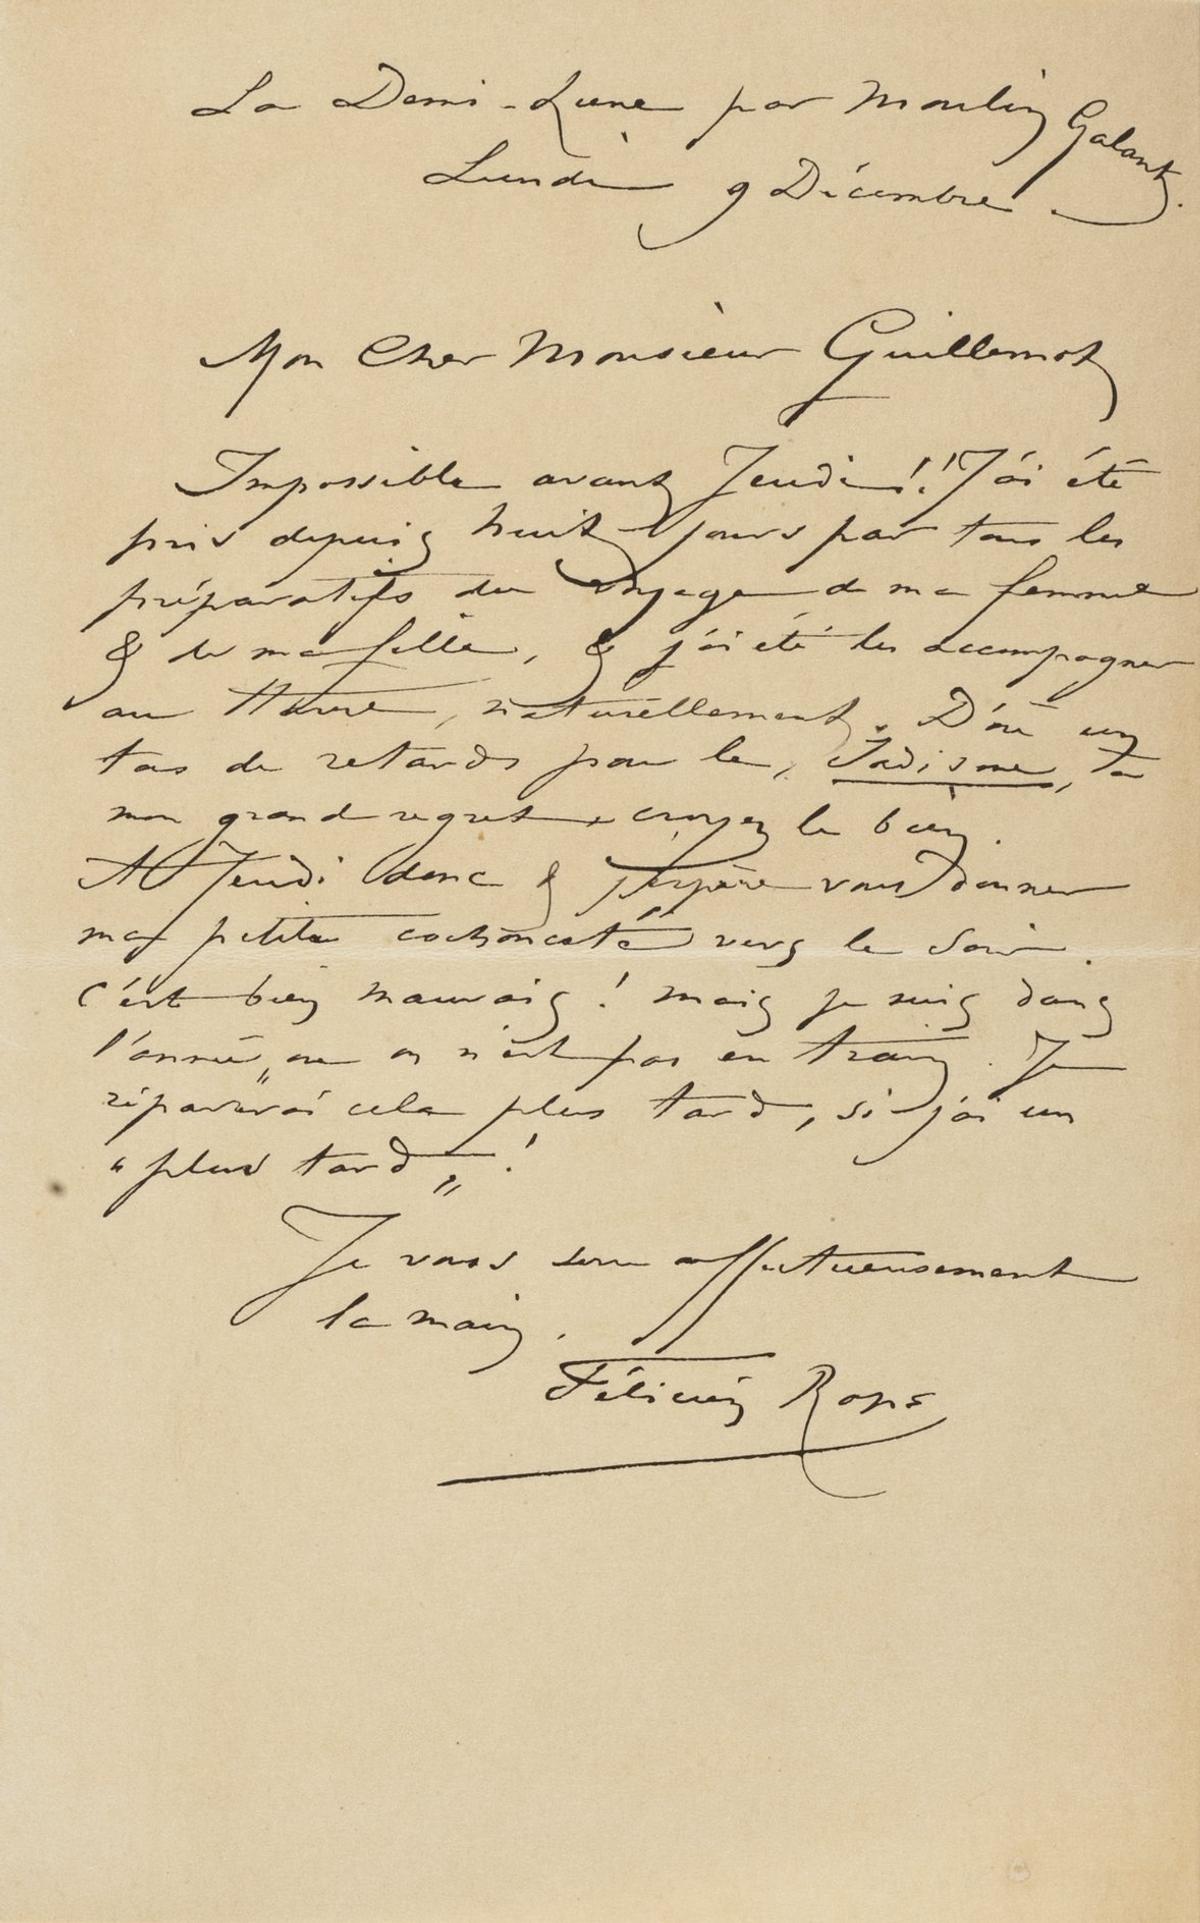 La Demi-Lune par Moulin Galant.
Lundi 9 Décembre.
Mon Cher Monsieur Guillemot
Impossible avant Jeudi!! J'ai été
pris depuis huit jours par tous les
préparatifs du voyage de ma femme
& de ma fille, & j'ai été les accompagner
au Havre, naturellement. D'où un
tas de retards pour le Sadisme, à
mon grand regret, croyez le bien.
A Jeudi donc & j'espère vous donner
ma petite cochonceté vers le soir.
C'est bien mauvais! mais je suis dans
l'année „ où on n'est pas en train. Je
réparerai cela plus tard, si j'ai un
“plus tard„!
Je vous serre affectueusement
la main.
Félicien Rops